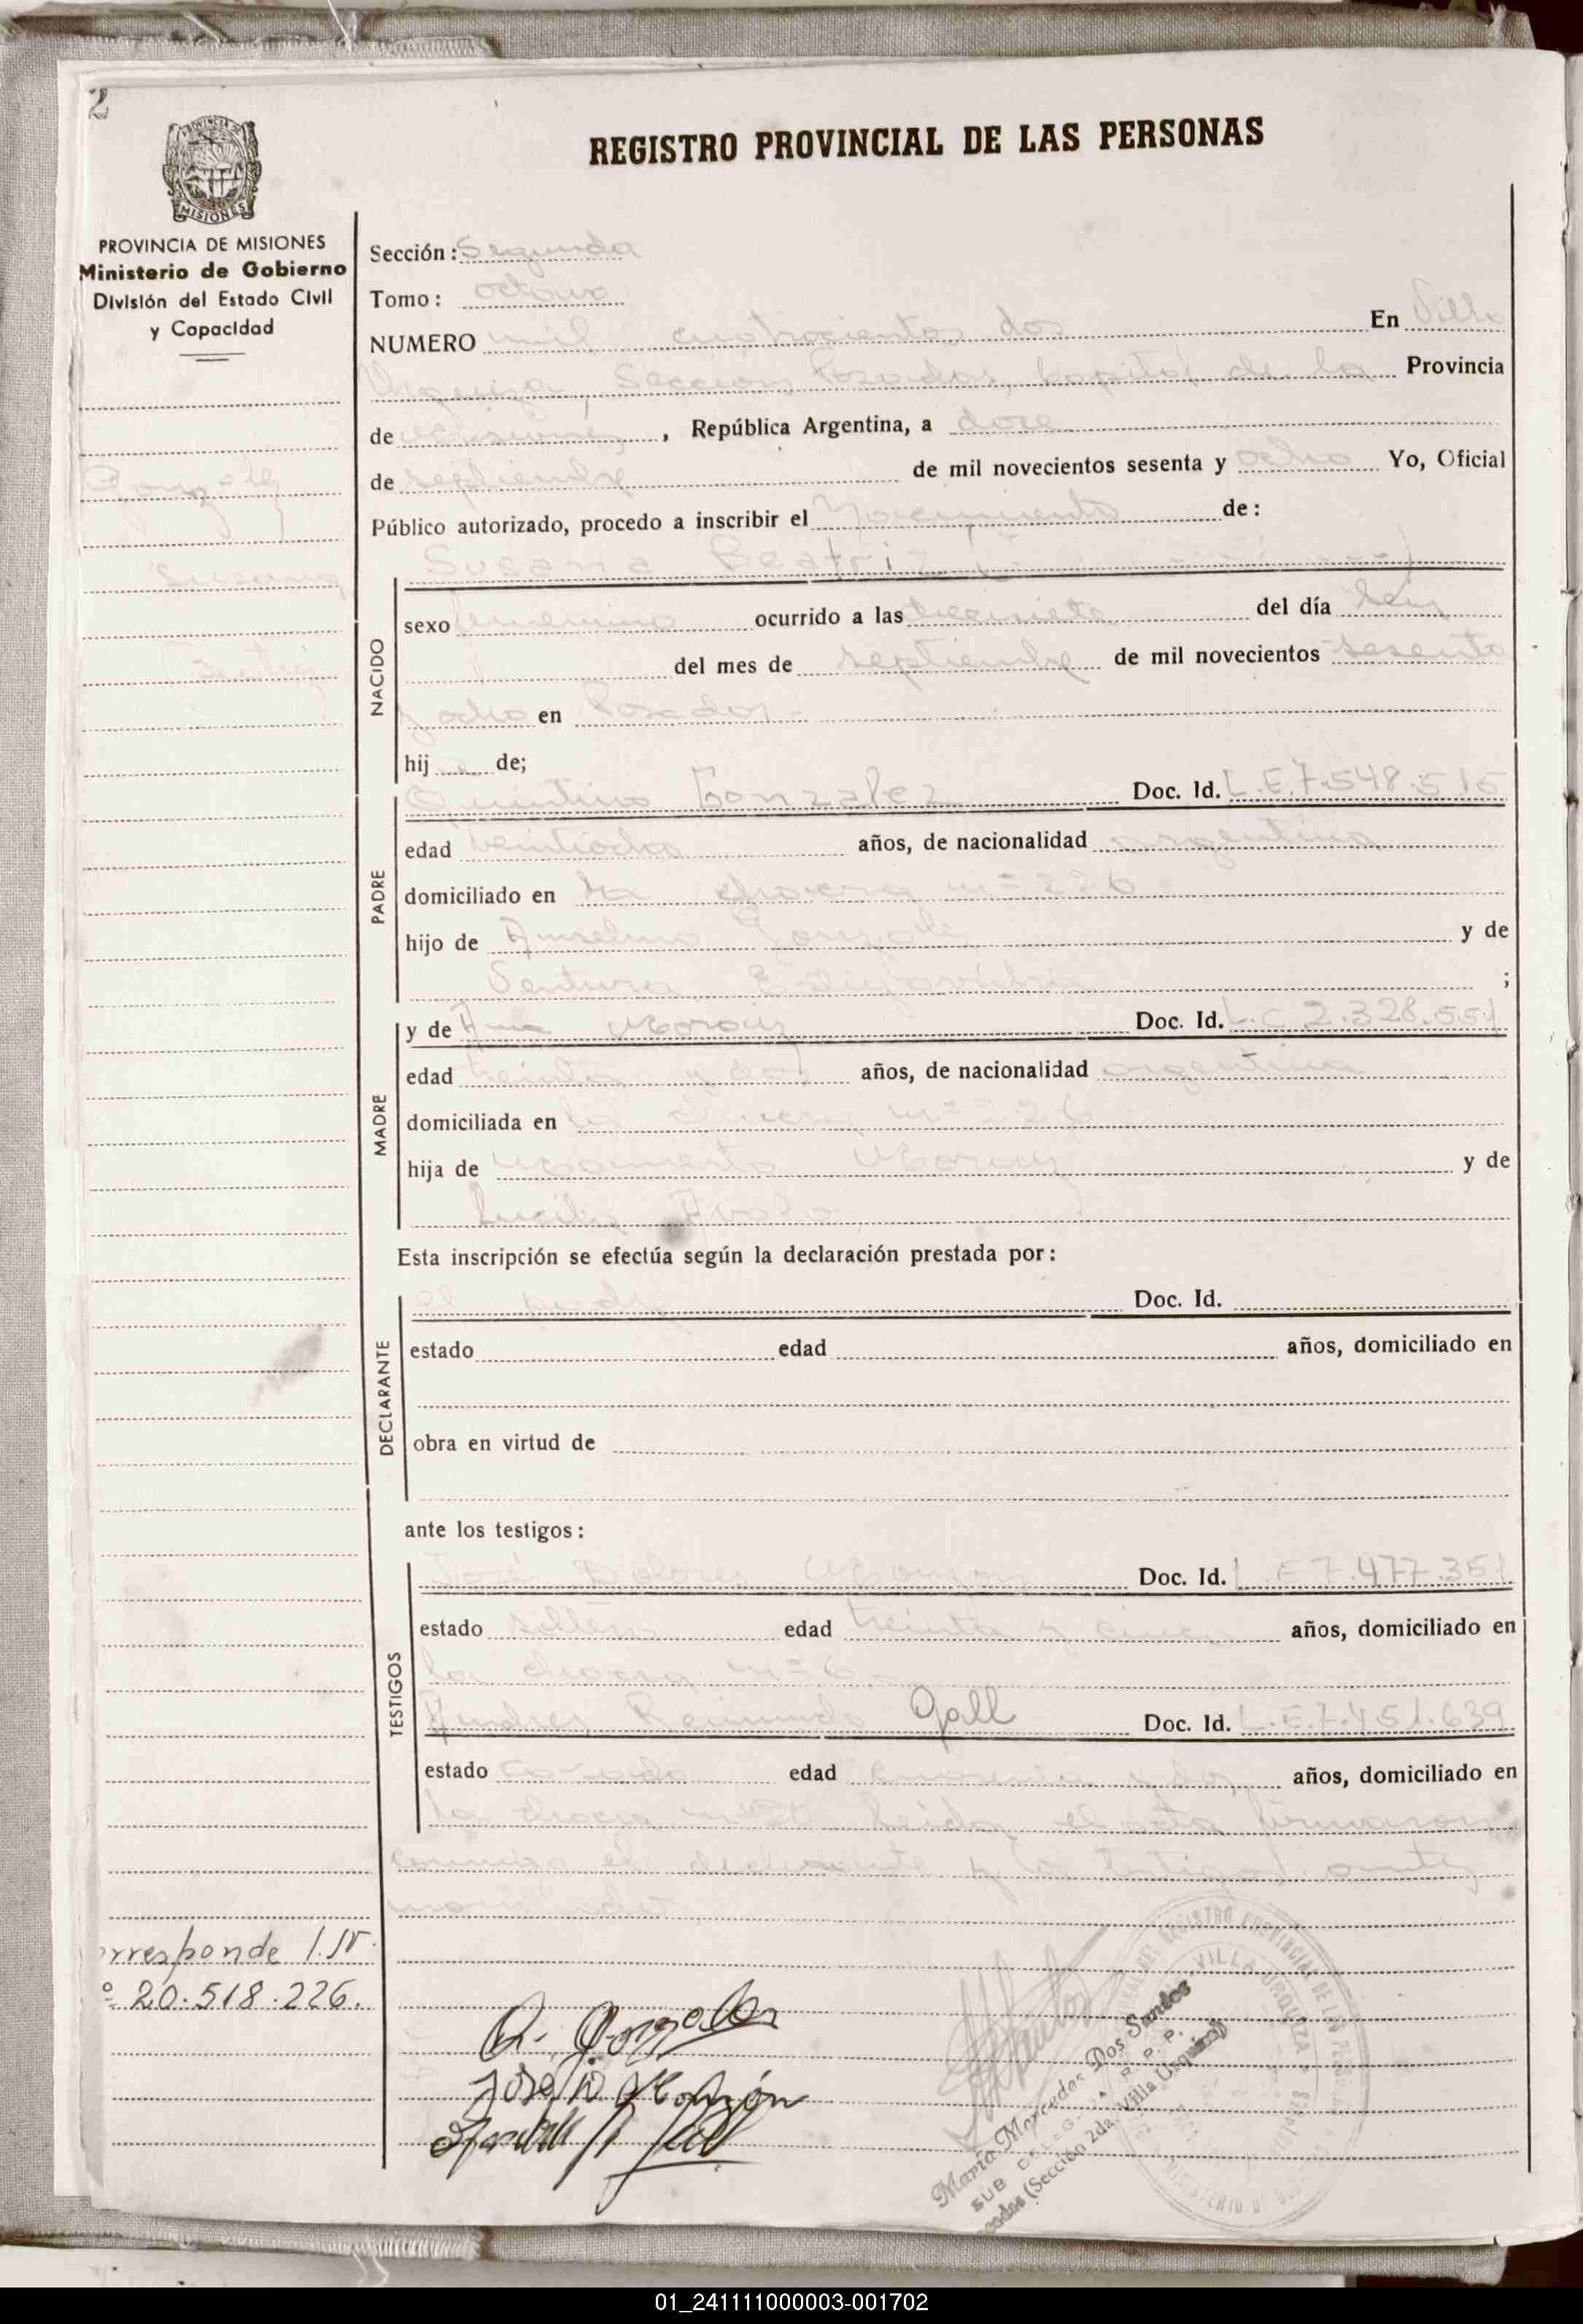 2
REGISTRO PROVINCIAL DE LAS PERSONAS
MISIONES
PROVINCIA DE MISIONES
Ministerio de Gobierno
División del Estado Civil
y Capacidad
Sección: Segunda
Tomo: octavo
NUMERO mil cuatrocientos dos En Villa
Urquiza, Seccion Posadas, Capital de la Provincia
de Misiones, República Argentina, a doce
de septiembre de mil novecientos sesenta y ocho Yo, Oficial
Público autorizado, procedo a inscribir el Nacimiento de:
Gonzalez
Susana
Beatriz
Susana Beatriz
NACIDO
sexo femenino ocurrido a las diecisiete del día seis
del mes de septiembre de mil novecientos sesenta
y ocho en Posadas
hij a de;
PADRE
Quintino Gonzalez Doc. Id. L.E.7.548.515
edad veintiocho años, de nacionalidad argentina
domiciliado en la chacra nº 226
hijo de Anselmo Gonzalez y de
Ventura ;
MADRE
y de Ana Doc. Id. L.C 2.328.551
edad treinta y dos años, de nacionalidad argentina
domiciliada en la chacra nº 226
hija de y de
Lucila
Esta inscripción se efectúa según la declaración prestada por:
DECLARANTE
el padre Doc. Id.
estado edad años, domiciliado en
obra en virtud de
ante los testigos:
TESTIGOS
José Dolores Monzon Doc. Id. L.E 7.477.351
estado soltero edad treinta y cinco años, domiciliado en
la chacra nº 6
Andres Raimundo Gall Doc. Id. L.E.7.451.639
estado casado edad años, domiciliado en
la chacra leida el acta firmaron
conmigo el declarante y los testigos antes
orresponde
º 20.518.226.
Q. Gonzalez
José D Monzón
María Mercedes Dos Santos
SUB DELEGADA R. P. P.
(Sección 2da. Villa Urquiza)
REGISTRO PROVINCIAL DE LAS PERSONAS
VILLA URQUIZA
MISIONES
01_241111000003-001702